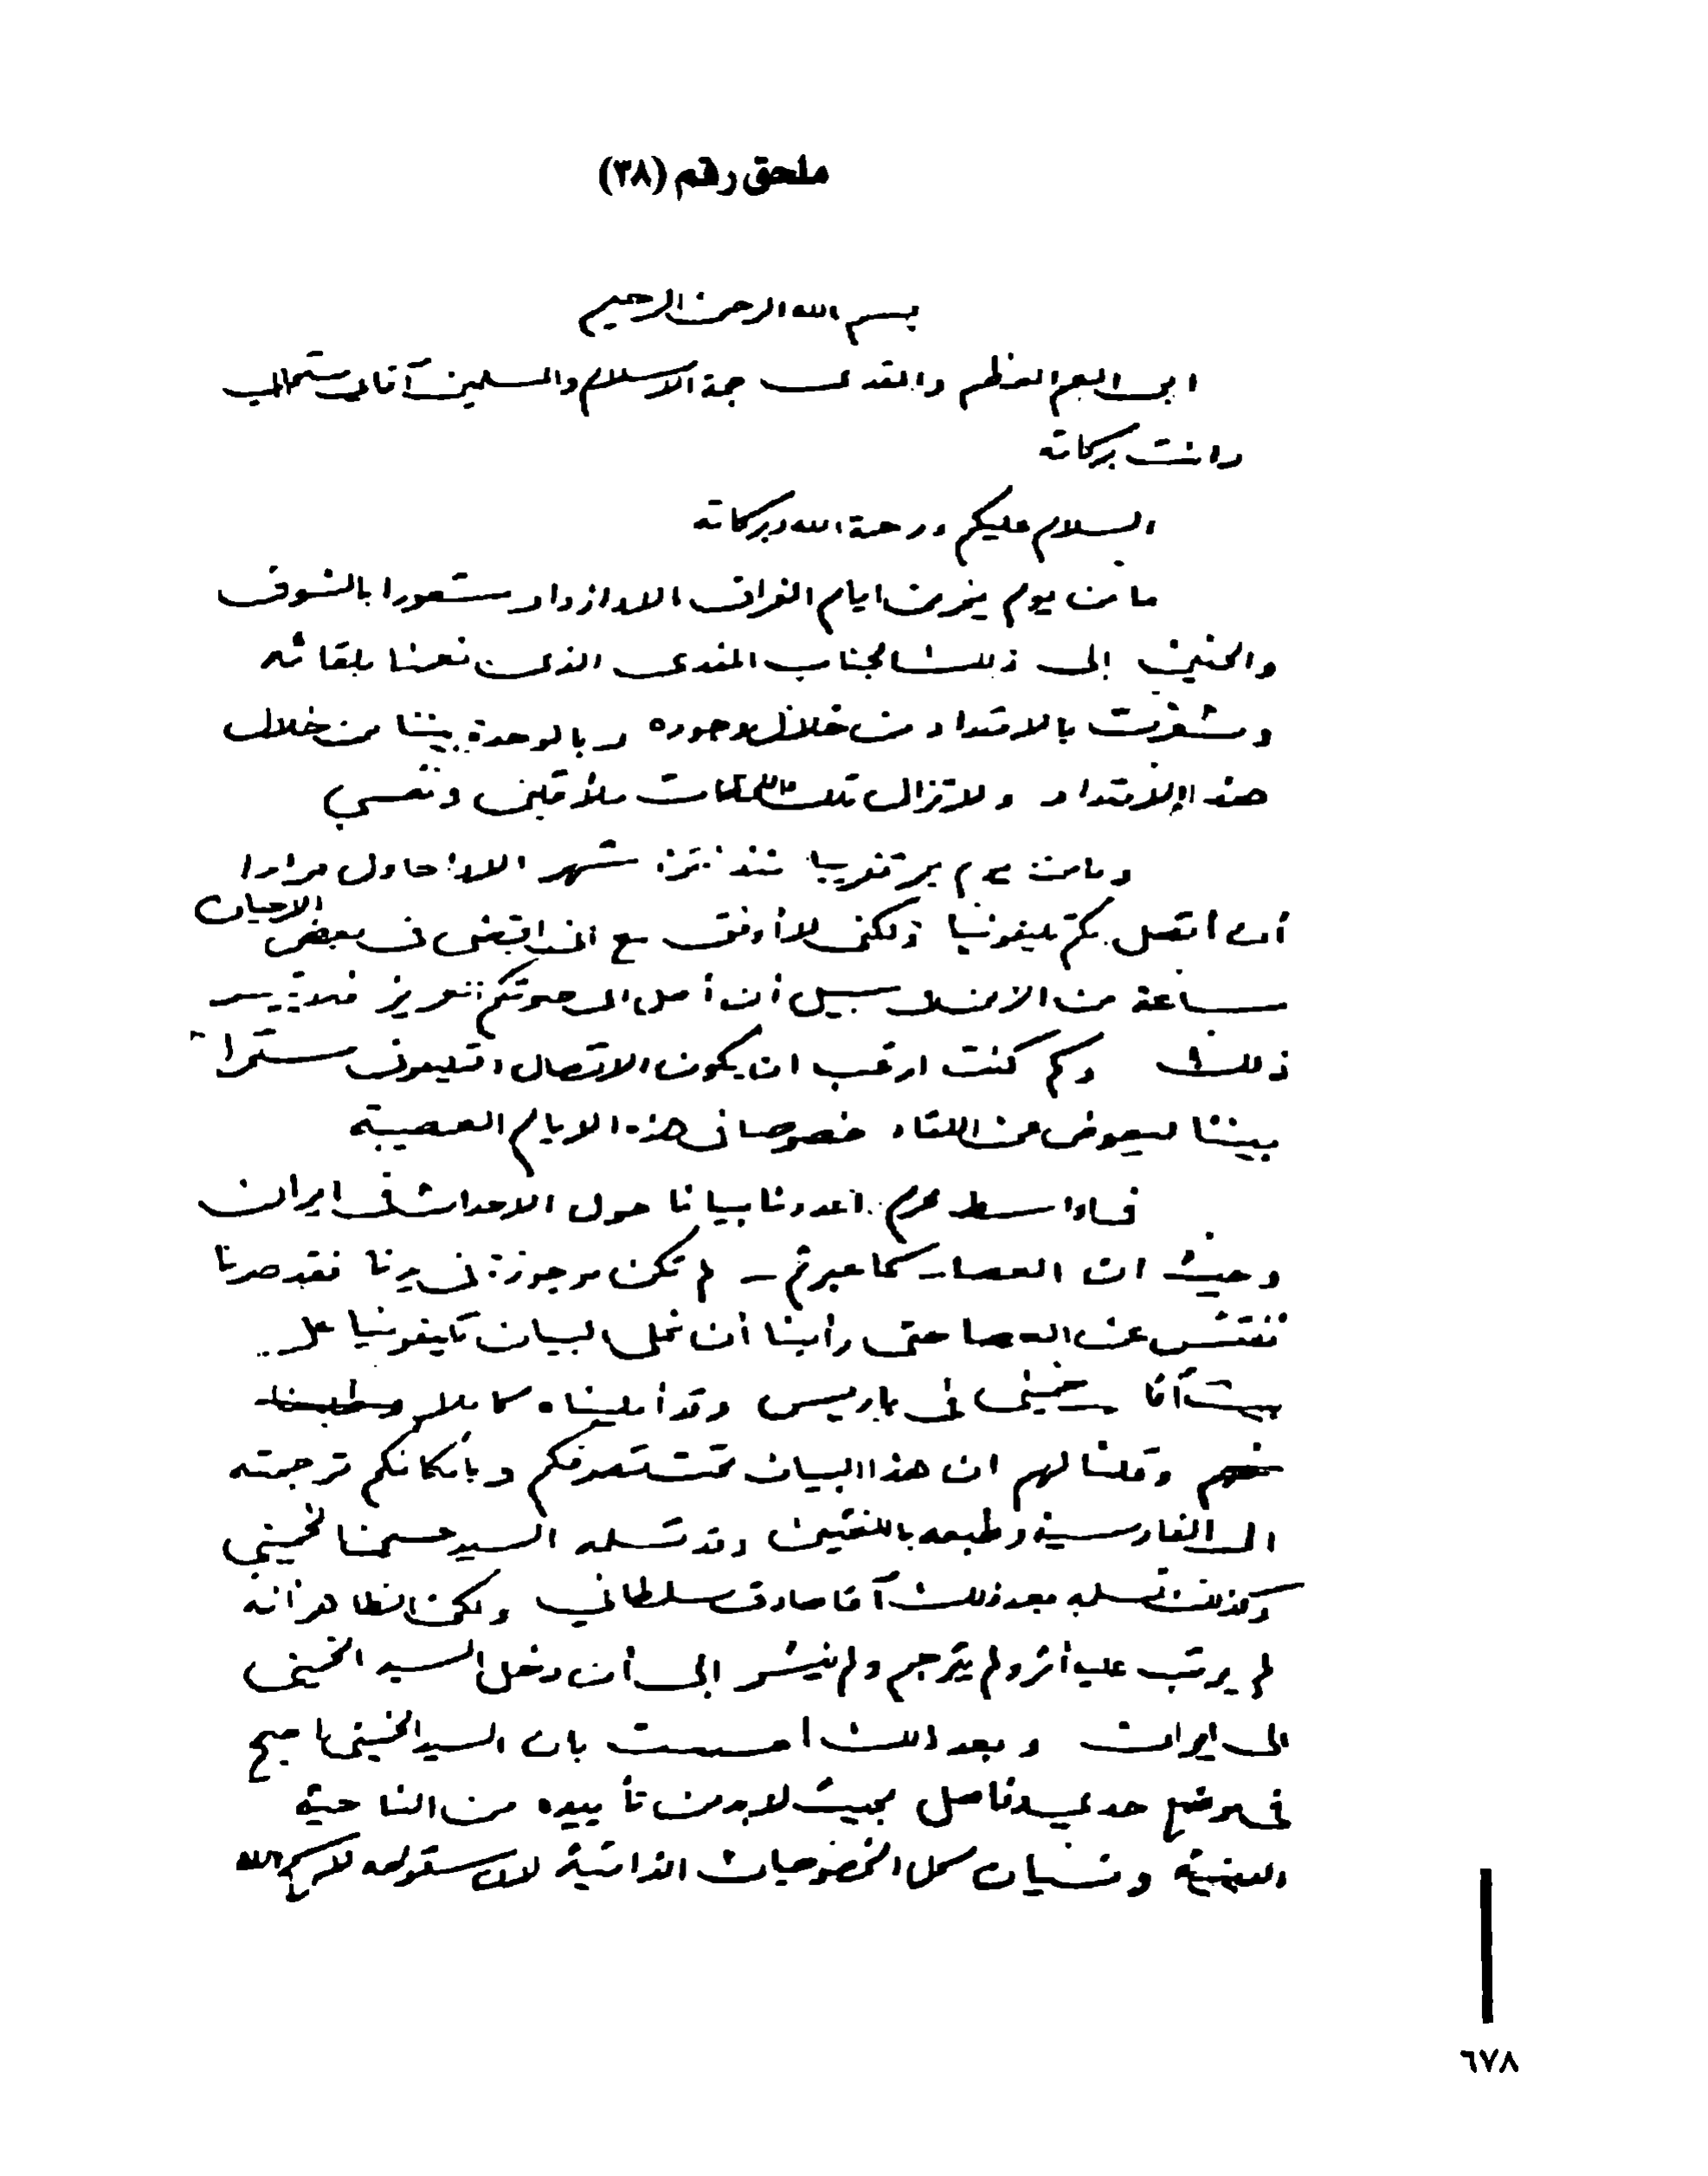 ملحق رقم (٣٨)
بسم الله الرحمن الرحيم
ابن العم المعظم والمقدى حجة الاسلام والمسلمين آقاى
دامت بركاته
السلام عليكم ورحمة الله وبركاته
ما من يوم يمر من ايام الفراق الا وازداد شعورا بالشوق
والحنين إلى ذلك الجناب المفدى الذى نعمنا بلقائه
وشعرت بالامتداد من خلال وجوده وبالوحدة بيننا من خلال
هذا الامتداد ولا تزال تلك الكلمات ملأ قلبى ونفسي
وما من يوم يمر تقريبا منذ فترة شهر الا واحاول مرارا
أن أتصل بكم تليفونيا ولكنى لا أوفق مع انى اقضى فى بعض الاحيان
ساعة من الزمن فى سبيل أن أصل الى صوتكم العزيز فلا يتيسر
ذلك وكم كنت ارغب ان يكون الاتصال التليفونى مستمرا
بيننا ليعوض عن اللقاء خصوصا فى هذه الايام العصيبة
فى اواسط محرم اعددنا بيانا حول الاحداث فى ايران
وحيث ان العصا - كما عبرتم - لم تكن موجودة فى يدنا فقد صرنا
نفتش عن العصا حتى رأينا أن نملى البيان تليفونيا على
بيت آقاى خمينى فى باريس وقد أمليناه كاملا وطلبنا
منهم وقلنا لهم ان هذا البيان تحت تصرفكم وبامكانكم ترجمته
الى الفارسية وطبعه باللغتين وقد تسلمه السيد حسين الخمينى
وكذلك تسلمه بعد ذلك آقا صادق سلطاني ولكن الظاهر انه
لم يرتب عليه أثر ولم يترجم ولم ينشر إلى أن دخل السيد الخمينى
الى ايران وبعد ذلك احسست بان السيد الخمينى اصبح
فى موضع حدى فاصل بحيث لا بد من تأييده من الناحية
الدينية ونسيان كل الخصوصيات الذاتية لان سقوطه لا سمح الله
٦٧٨